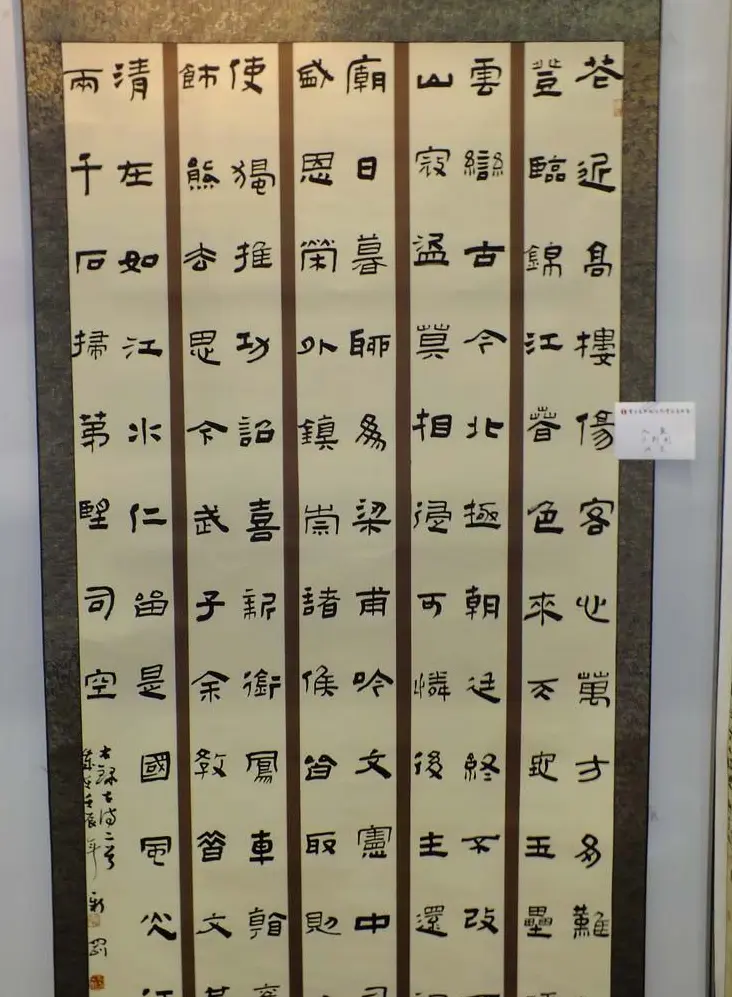 花近高樓傷客心萬方多難
登臨錦江春色來天地玉壘
雲變古今北極朝廷終不改
山寇盜莫相侵可憐後主還
廟日暮聊為梁甫吟文憲中
盛恩榮外鎮崇諸侯皆取則
使獨推功詔喜新銜鳳車翰
飾熊去思今武子余教昔文
清在如江水仁留是國風光
兩千石掃第望司空
右録古詩二首
壬辰年